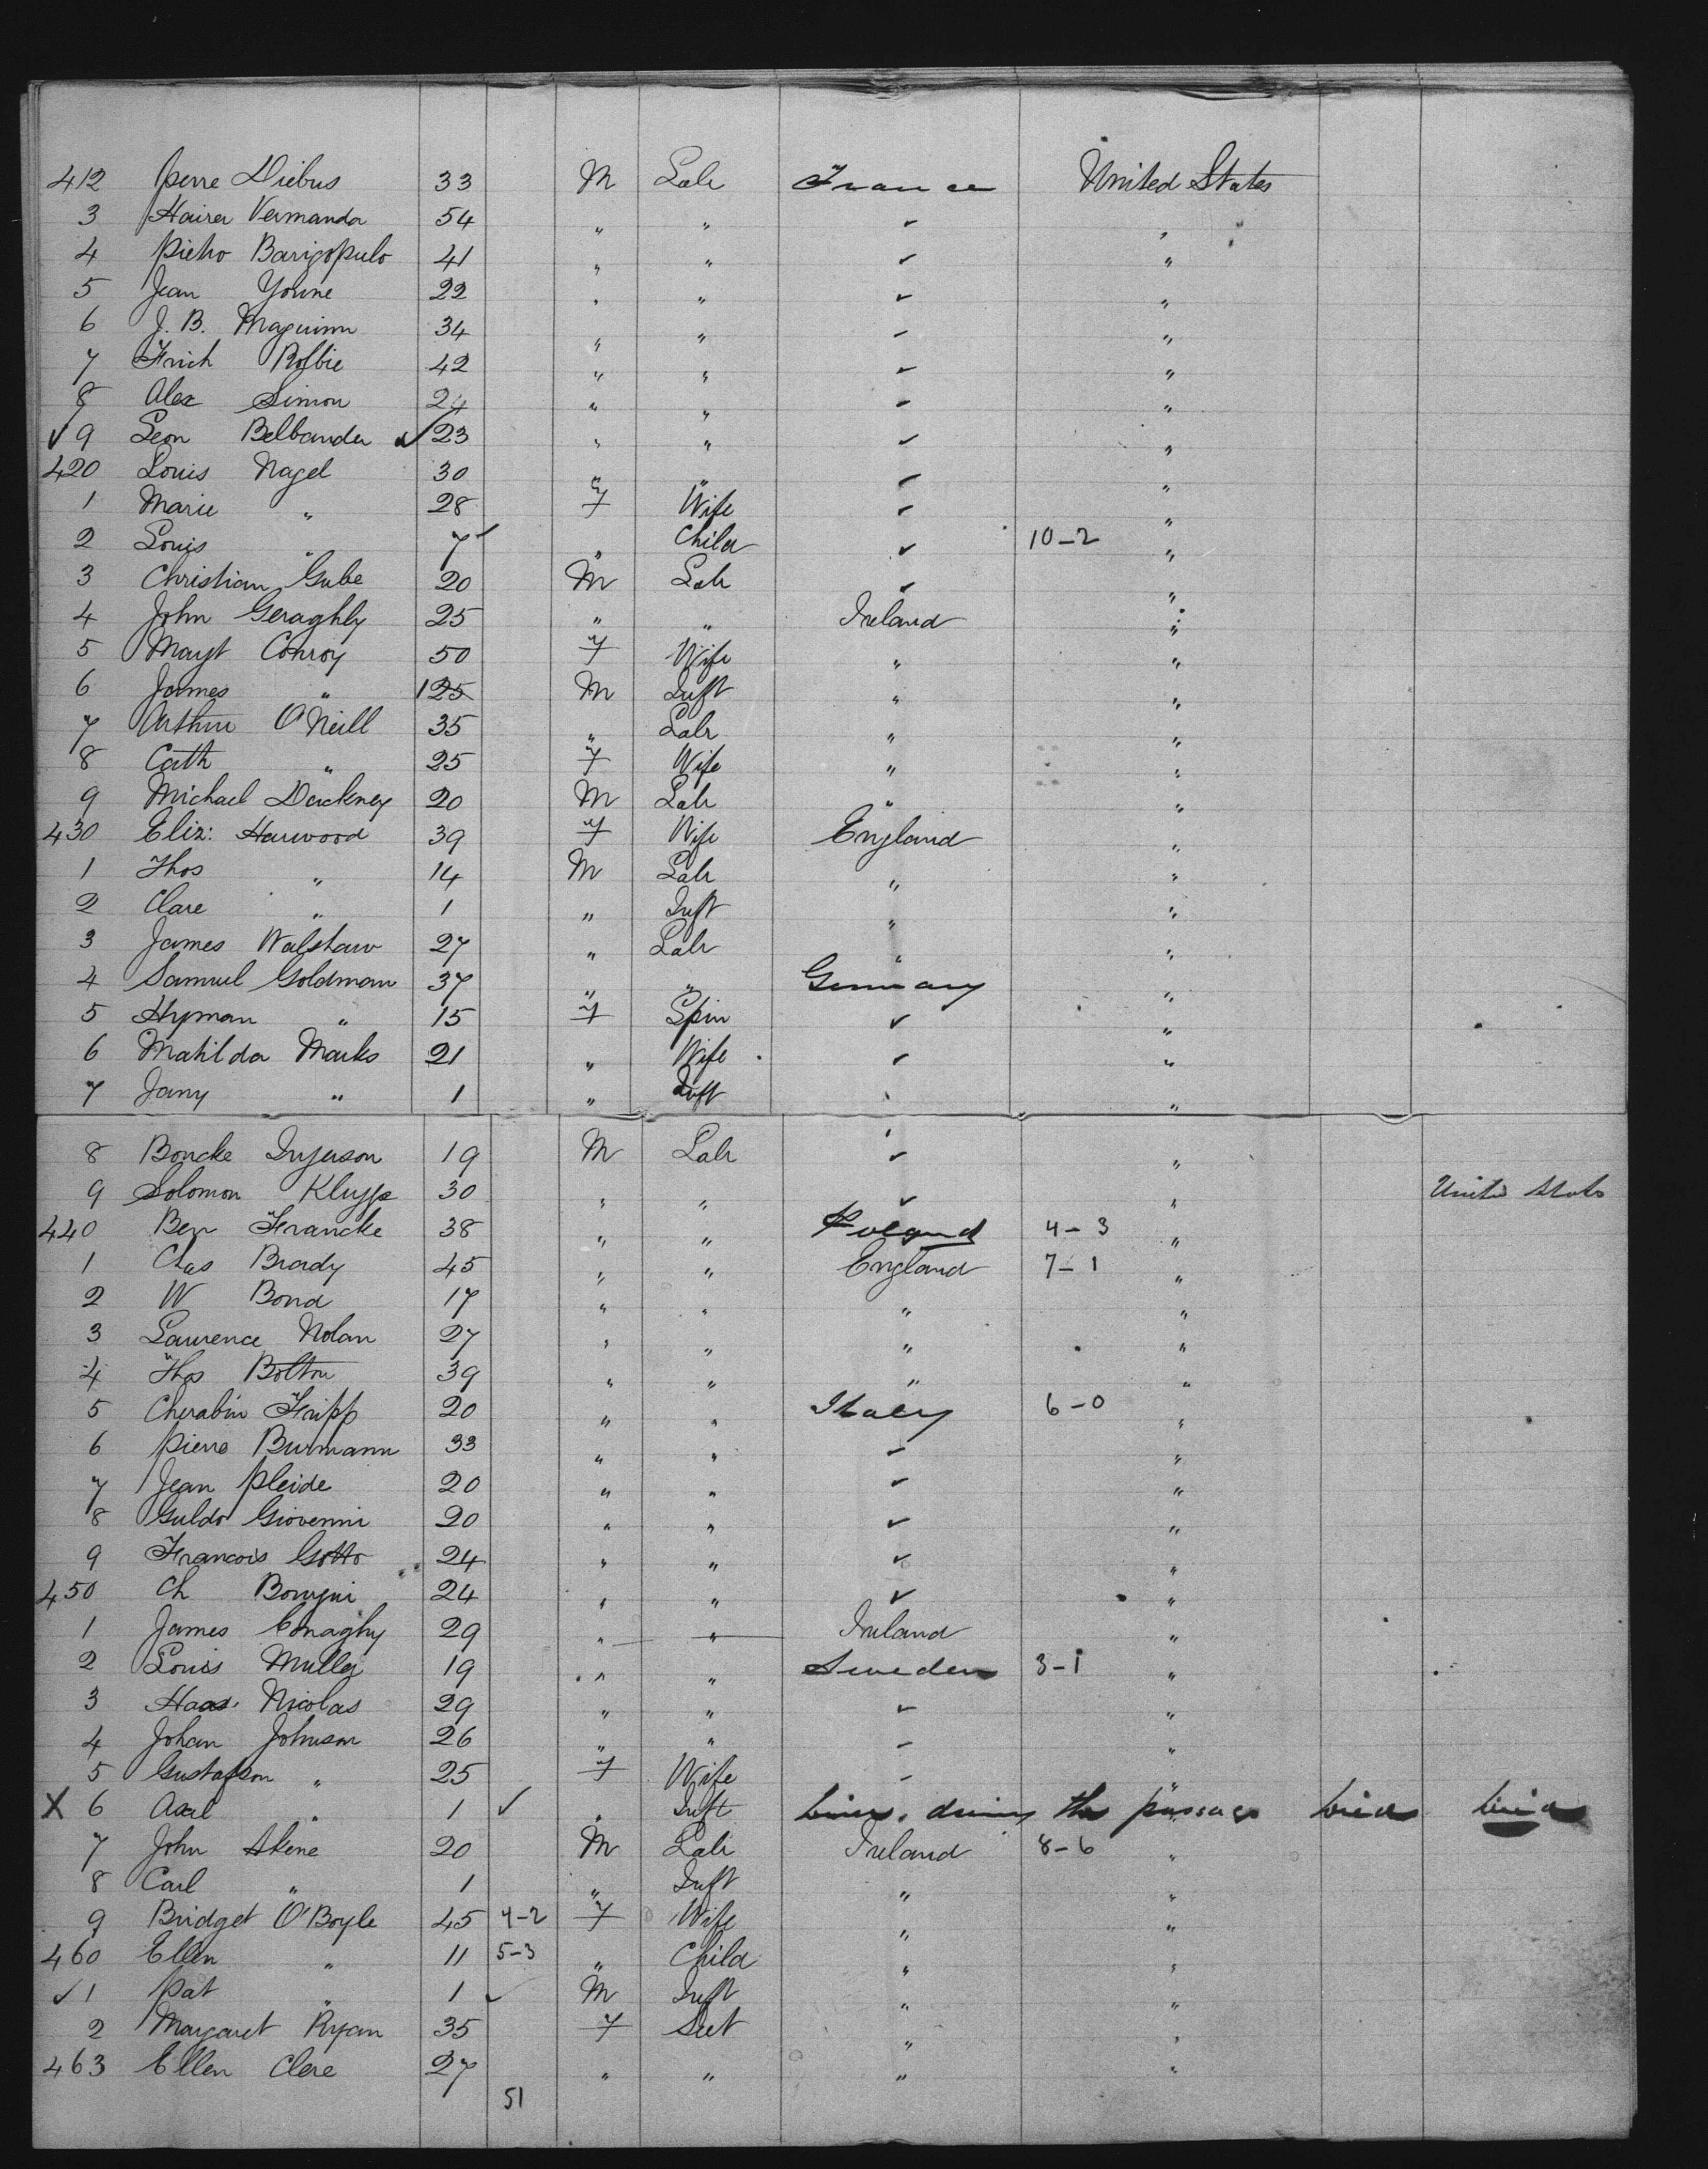 412 Pierre Diebus 33 M Labr France United States
3 Hairer Vermanda 54 " " ✓ "
4 Pietro Barigopulo 41 " " ✓ "
5 Jean Yorine 22 " " ✓ "
6 J. B. Maguinn 34 " " ✓ "
7 Frich Rolbie 42 " " ✓ "
8 Alex Simon 24 " " ✓ "
✓ 9 Leon Belbander ✓ 23 " " ✓ "
420 Louis Nagel 30 " " ✓ "
1 Marie " 28 F Wife ✓ "
2 Louis " 7 ✓ " Child ✓ 10-2 "
3 Christian Gube 20 M Labr ✓ "
4 John Geraghty 25 " " Ireland "
5 Mayt Conroy 50 F Wife " "
6 James " 125 M Inft " "
7 Arthur O'Neill 35 " Labr " "
8 Cath " 25 F Wife " "
9 Michael Duckney 20 M Labr " "
430 Eliz: Harwood 39 F Wife England "
1 Thos " 14 M Labr " "
2 Clare " 1 " Inft " "
3 James Walshaw 27 " Labr " "
4 Samuel Goldman 37 " " Germany "
5 Hyman " 15 F Spin ✓ "
6 Matilda Marks 21 " Wife ✓ "
7 Jany " 1 " Inft "
8 Boncke Ingerson 19 M Labr ✓ "
9 Solomon 30 " " ✓ " United States
440 Ben Francke 38 " " Poland 4-3 "
1 Chas Brady 45 " " England 7-1 "
2 W Bond 17 " " " "
3 Laurence Nolan 27 " " " "
4 Thos Bolton 39 " " " "
5 Cherabin Fripp 20 " " Italy 6-0 "
6 Pierre Burmann 33 " " ✓ "
7 Jean Pleide 20 " " ✓ "
8 Guldo Giovenni 20 " " ✓ "
9 Francois Gotto 24 " " ✓ "
450 Ch Bongni 24 " " ✓ "
1 James Conaghy 29 " " Ireland "
2 Louis Muller 19 " " Sweden 3-1 "
3 Haas Nicolas 29 " " ✓ "
4 Johan Johnson 26 " " ✓ "
5 Gustafson " 25 F Wife ✓ "
X 6 Axel " 1 ✓ " Inft during the passage
7 John Skene 20 M Labr Ireland 8-6 "
8 Carl " 1 " Inft " "
9 Bridget O'Boyle 45 4-2 F Wife " "
460 Ellen " 11 5-3 " Child " "
✓ 1 Pat " 1 ✓ M Inft " "
2 Margaret Ryan 35 F " "
463 Ellen Clere 27 " " " "
51